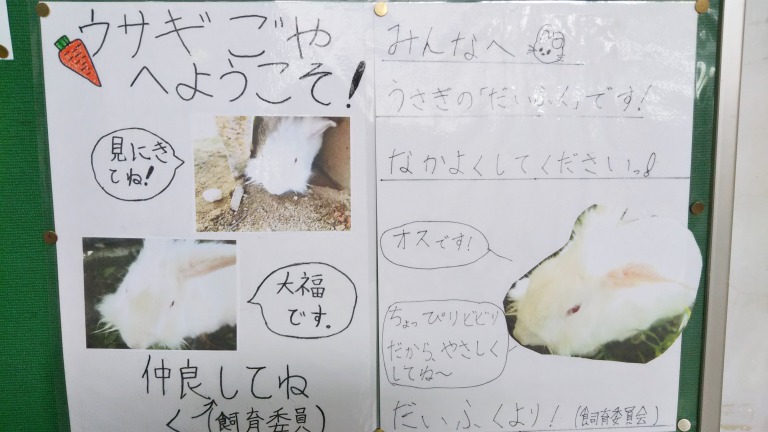 ウサギごや
へようこそ!
見にき
てね!
大福
です。
仲良してね
く
(飼育委員)
みんなへ
うさぎの「だいふく」です!
なかよくしてくださいっ!
オスです!
ちょっぴりどじり
だから、やさしく
してね〜
だいふくより! (飼育委員会)